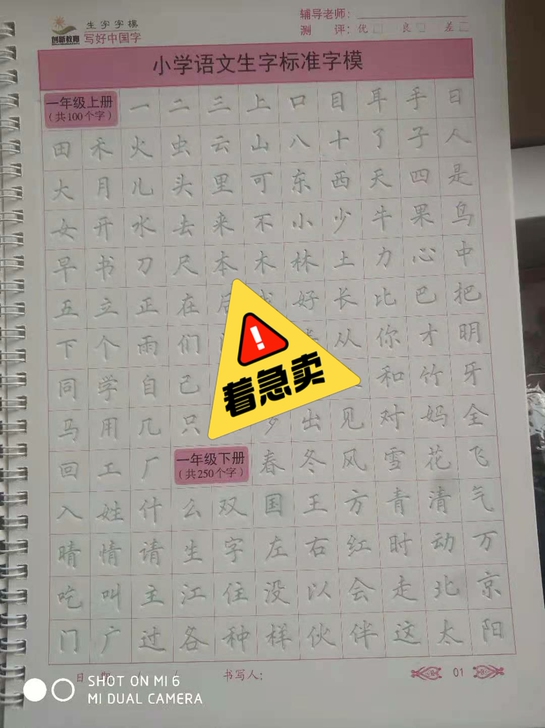 辅导老师：
生字字模
创新教育
写好中国字
测 评：优□ 良□ 差□
小学语文生字标准字模
一年级上册
（共100个字）
一 二 三 上 口 目 耳 手 日
田 禾 火 虫 云 山 八 十 了 子 人
大 月 儿 头 里 可 东 西 天 四 是
女 开 水 去 来 不 小 少 牛 果 鸟
早 书 刀 尺 本 木 林 土 力 心 中
五 立 正 在 后 我 好 长 比 巴 把
下 个 雨 们 从 你 才 明
同 学 自 己 和 竹 牙
马 用 几 只 出 见 对 妈 全
回 工 厂
一年级下册
（共250个字）
春 冬 风 雪 花 飞
入 姓 什 么 双 国 王 方 青 清 气
晴 情 请 生 字 左 右 红 时 动 万
吃 叫 主 江 住 没 以 会 走 北 京
门 广 过 各 种 样 伙 伴 这 太 阳
着急卖
书写人：
01
SHOT ON MI 6
MI DUAL CAMERA